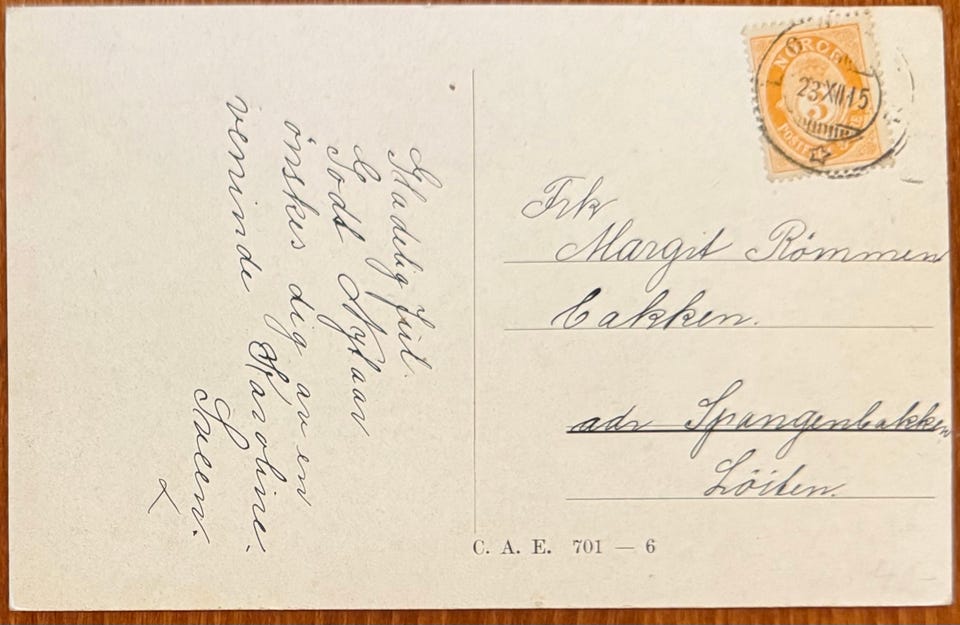 Gladelig Juil.
Godt Nytaar
önskes dig av en
veninde Karoline.
Sveen.
NORGE
3
POSTFRIM
23 XII 15
Frk
Margit Römmen
Bakken.
adr Spangenbakken
Löiten.
C. A. E. 701 — 6